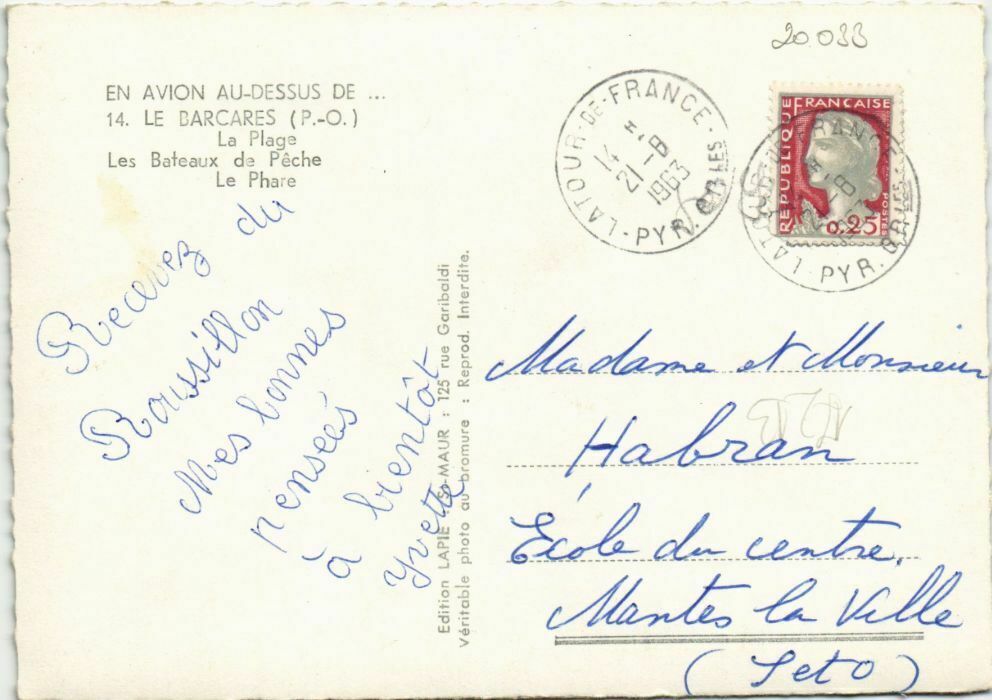 20.033
EN AVION AU-DESSUS DE ...
14. LE BARCARES (P.-O.)
La Plage
Les Bateaux de Pêche
Le Phare
Recevez du
Roussillon
Mes bonnes
pensées
à bientôt
Yvette
Edition LAPIE - St-MAUR : 125 rue Garibaldi
Véritable photo au bromure : Reprod. Interdite.
LATOUR-DE-FRANCE - PYR. ORLES
14 H.
21-8
1963
REPUBLIQUE FRANÇAISE
POSTES
0,25
LATOUR FRANCE - PYR. ORLES
21-8
Madame et Monsieur
Habran
École du centre.
Mantes la Ville
(Seto)